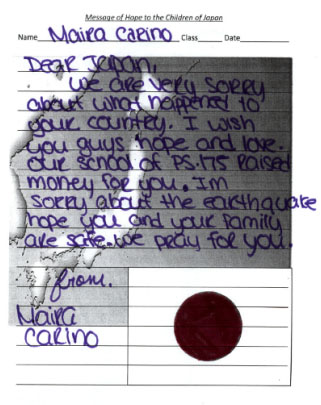 Message of Hope to the Children of Japan
Name Maira Carino Class Date
Dear Japan,
We are very sorry
about what happened to
your country. I wish
you guys hope and love.
Our school of PS.175 raised
money for you. Im
sorry about the earthquate
hope you and your family
are safe. We pray for you.
from.
Maira
Carino